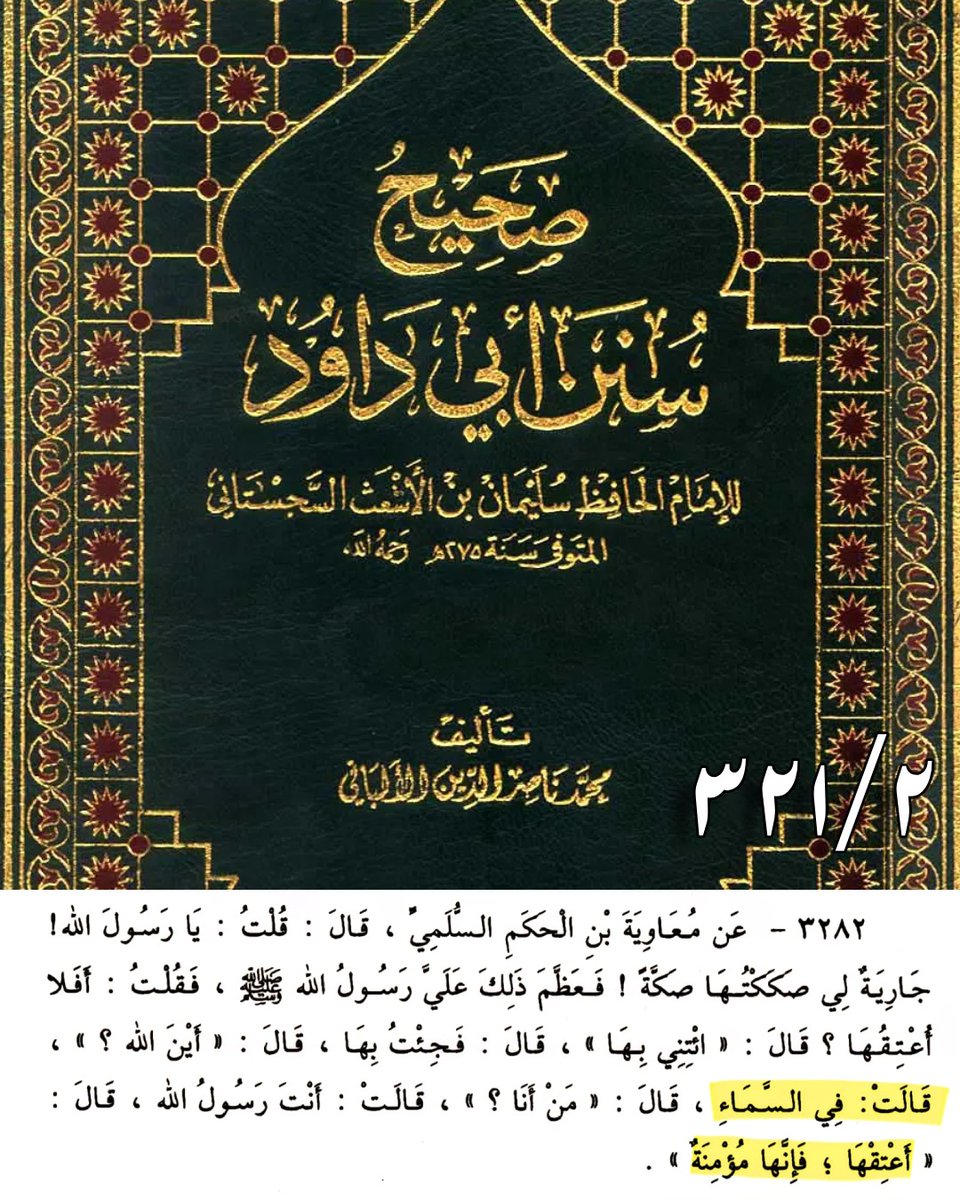 صَحِيحُ
سُنَنِ أَبِي دَاوُد
للإِمَامِ الحَافِظِ سُلَيْمَان بْن الأَشْعَث السِّجِسْتَانِي
المتَوفى سَنَة ٢٧٥هـ رَحِمَهُ الله
تَأليفْ
محمّد نَاصِر الدِّين الألبَاني
٣٢١/٢
٣٢٨٢ - عَن مُعَاوِيَةَ بْنِ الْحَكَمِ السُّلَمِيِّ ، قَالَ : قُلْتُ : يَا رَسُولَ الله!
جَارِيَةٌ لِي صَكَكْتُهَا صَكَّةً ! فَعَظَّمَ ذَلِكَ عَلَيَّ رَسُولُ الله ﷺ ، فَقُلْتُ : أَفَلا
أُعْتِقُهَا ؟ قَالَ : « ائْتِنِي بِهَا » ، قَالَ : فَجِئْتُ بِهَا ، قَالَ : « أَيْنَ الله ؟ » ،
قَالَتْ: فِي السَّمَاءِ ، قَالَ : « مَنْ أَنَا ؟ » ، قَالَتْ : أَنْتَ رَسُولُ الله ، قَالَ :
« أَعْتِقْهَا ؛ فَإِنَّهَا مُؤْمِنَةٌ » .